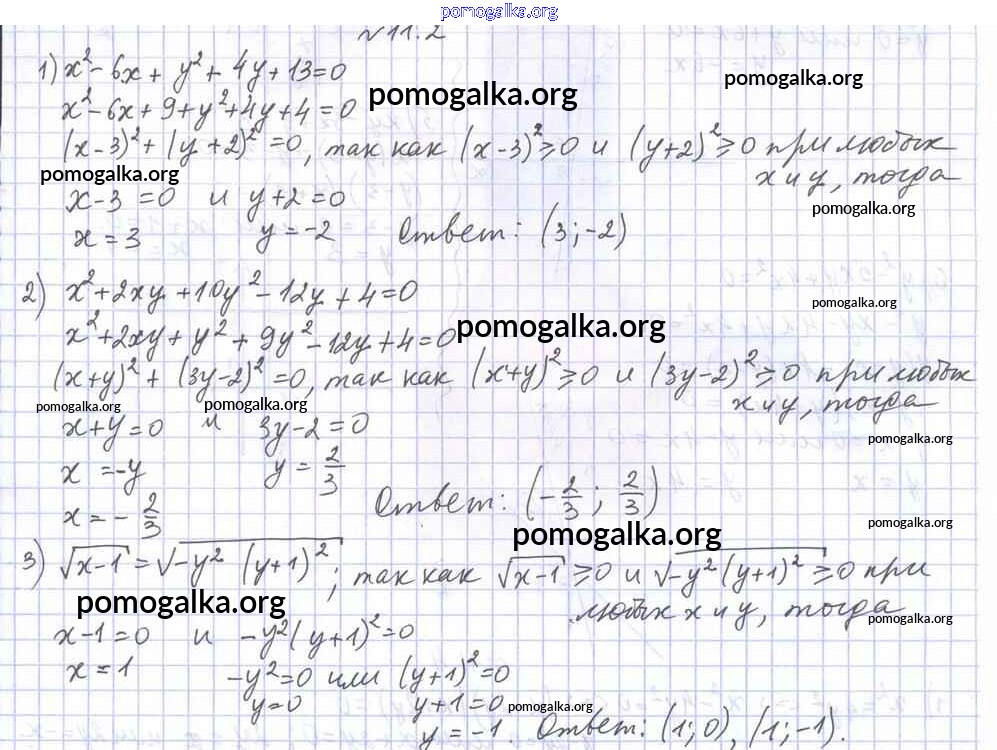 pomogalka.org
№11.2
1) x² - 6x + y² + 4y + 13 = 0
pomogalka.org
pomogalka.org
x² - 6x + 9 + y² + 4y + 4 = 0
(x - 3)² + (y + 2)² = 0, так как (x - 3)² ≥ 0 и (y + 2)² ≥ 0 при любых
x и y, тогда
pomogalka.org
x - 3 = 0 и y + 2 = 0
pomogalka.org
x = 3 y = -2 Ответ: (3; -2)
2) x² + 2xy + 10y² - 12y + 4 = 0
pomogalka.org
x² + 2xy + y² + 9y² - 12y + 4 = 0
pomogalka.org
(x + y)² + (3y - 2)² = 0, так как (x + y)² ≥ 0 и (3y - 2)² ≥ 0 при любых
x и y, тогда
pomogalka.org
pomogalka.org
x + y = 0 и 3y - 2 = 0
pomogalka.org
x = -y y = 2/3
x = -2/3 Ответ: (-2/3; 2/3)
pomogalka.org
pomogalka.org
3) √(x - 1) = √(-y² (y + 1)²; так как √(x - 1) ≥ 0 и √(-y² (y + 1)² ≥ 0 при
pomogalka.org
любых x и y, тогда
pomogalka.org
x - 1 = 0 и -y² (y + 1)² = 0
x = 1 -y² = 0 или (y + 1)² = 0
y = 0 y + 1 = 0
pomogalka.org
y = -1 Ответ: (1; 0), (1; -1).